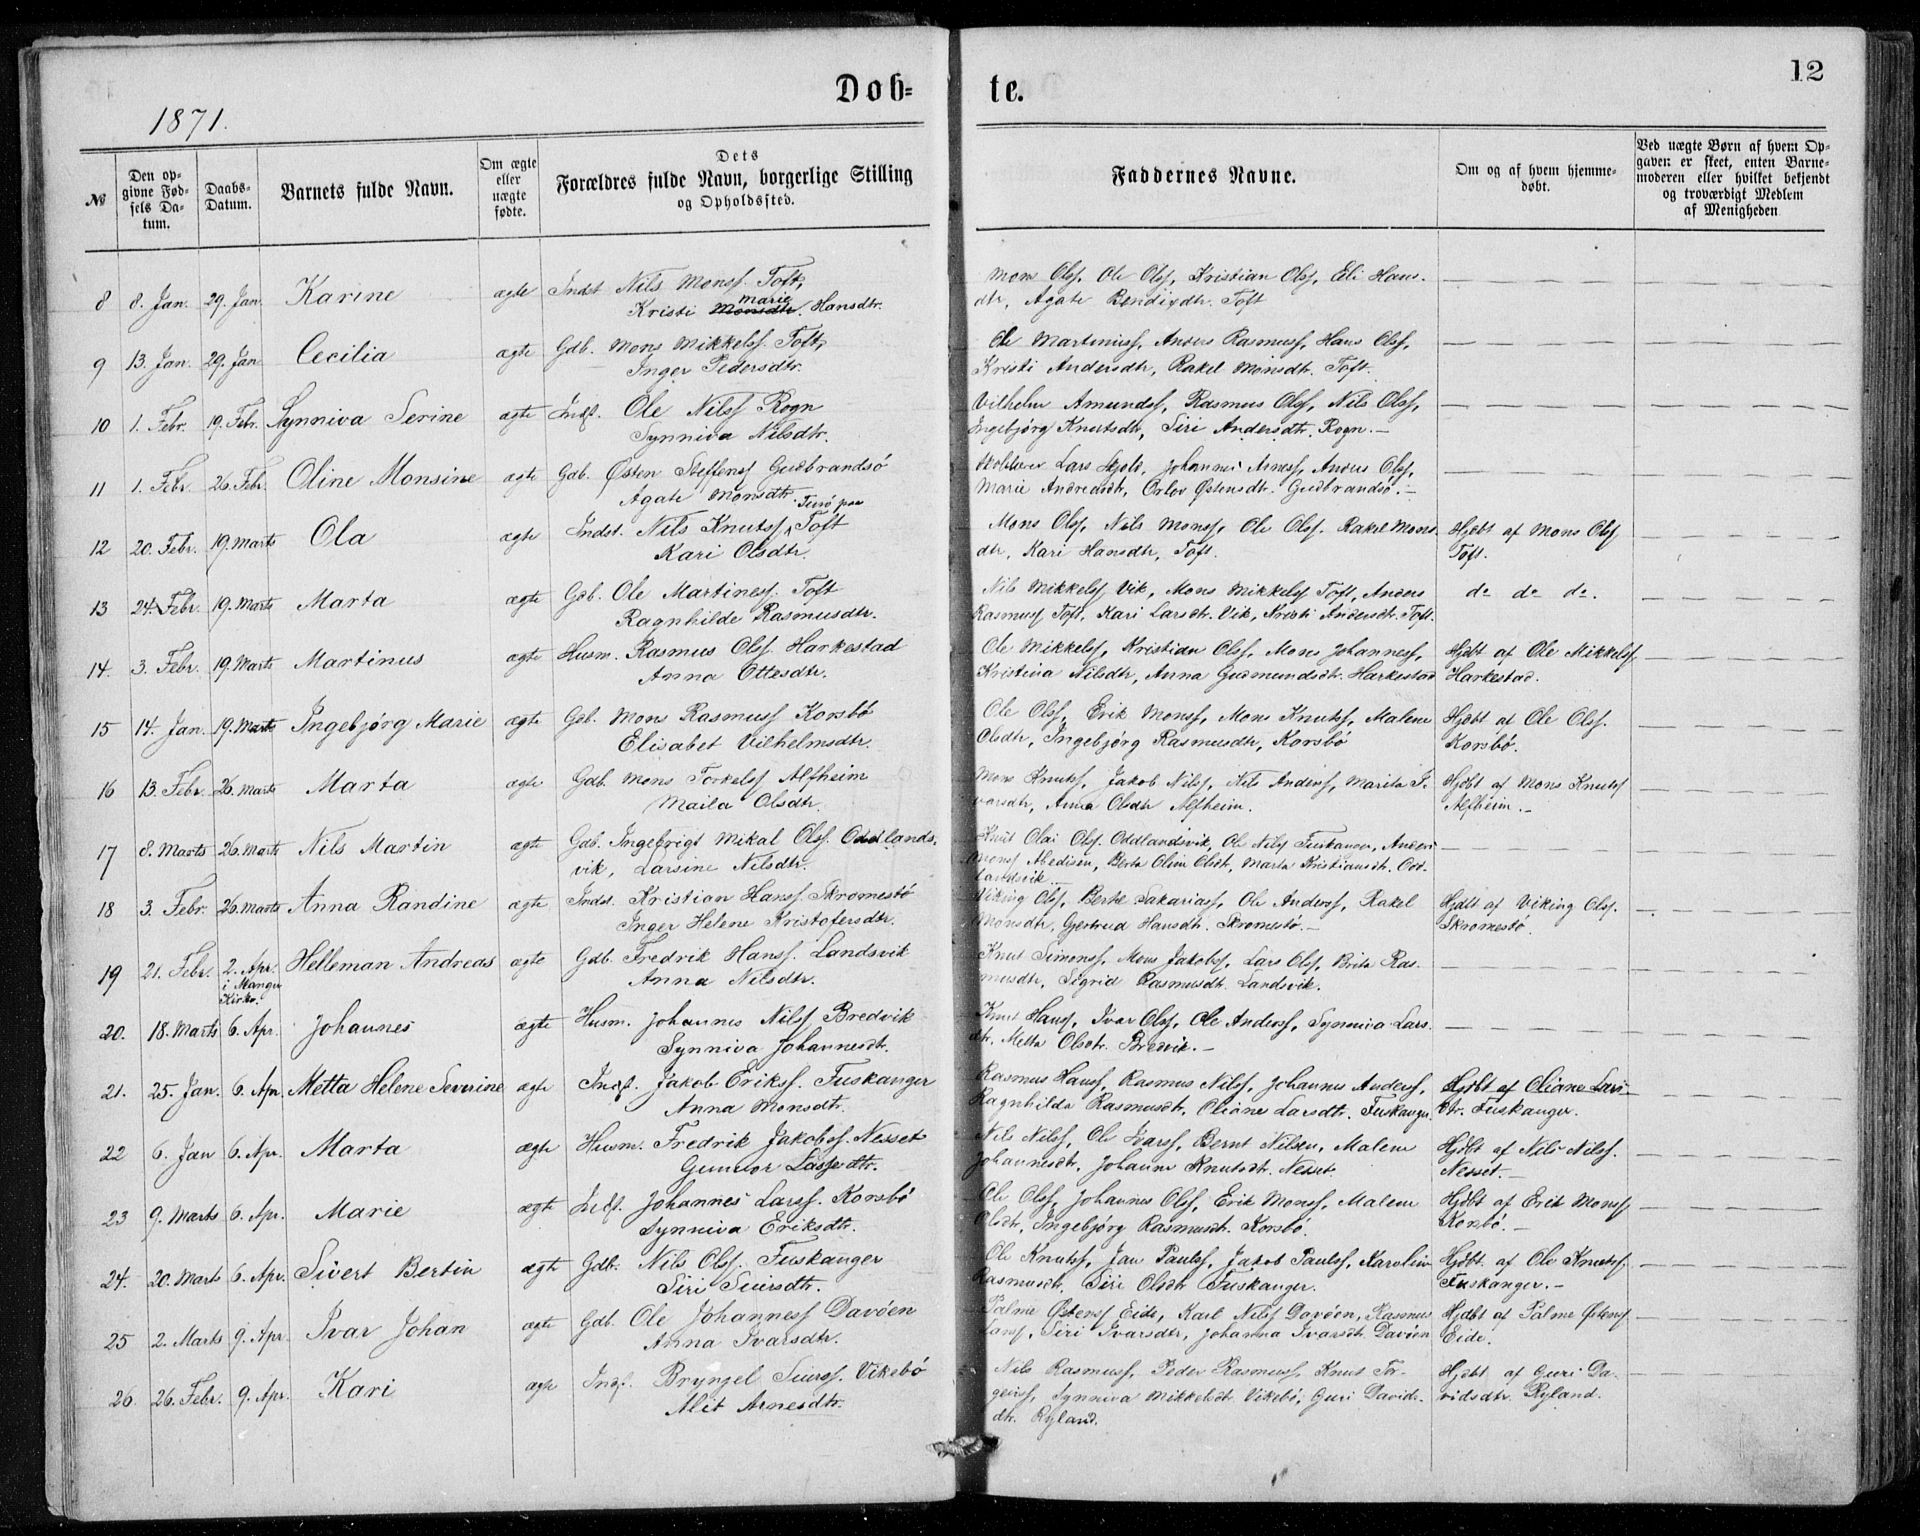 Døb=
te.
12
1871.
№
Den op-
givne Fød-
sels Da-
tum.
Daabs-
Datum.
Barnets fulde Navn.
Om ægte
eller
uægte
fødte.
Dets
Forældres fulde Navn, borgerlige Stilling
og Opholdssted.
Faddernes Navne.
Om og af hvem hjemme-
døbt.
Ved uægte Børn af hvem Op-
gaven er skeet, enten Barne-
moderen eller hvilket bekjendt
og troværdigt Medlem
af Menigheden
8 8. Jan. 29. Jan. Karine ægte Indst. Nils Monss. Toft,
Kristi Monsdtr. Marie Hansdtr.
Mons Olss, Ole Olss, Kristian Olss, Eli Hans-
dtr, Agate Bendixdtr. Toft
9 13. Jan. 29. Jan. Cecilia ægte Gdb. Mons Mikkelss. Toft,
Inger Pedersdtr.
Ole Martinuss, Anders Rasmuss, Hans Olss,
Kristi Andersdtr, Rakel Monsdtr. Toft.
10 1. Febr. 19. Febr. Synniva Serine ægte Indst. Ole Nilss Rogn
Synniva Nilsdtr.
Vilhelm Amundss, Rasmus Olss, Nils Olss,
Ingebjörg Knutsdtr, Siri Andersdtr. Rogn.-
11 1. Febr. 26. Febr. Oline Monsine ægte Gdb. Østen Steffenss Gudbrandsö
Agate Monsdtr.
Lars Skjold, Johannes Arness, Anders Olss,
Marie Andreasdtr, Orlov Østensdtr. Gudbrandsö.-
12 20. Febr. 19. Marts Ola ægte Indst. Nils Knutss, Turö paa Toft
Kari Olsdtr.
Mons Olss, Nils Monss, Ole Olss. Rakel Mons-
dtr, Kari Hansdtr, Toft.
Hjdbt af Mons Olss
Toft.
13 24. Febr. 19. Marts Marta ægte Gdb. Ole Martiness. Toft
Ragnhilde Rasmusdtr.
Nils Mikkelss Vik, Mons Mikkelss Toft, Anders
Rasmuss Toft, Kari Larsdtr. Vik, Kristi Andersdtr. Toft.
do do do.
14. 3. Febr. 19. Marts Martinus ægte Husm. Rasmus Olss. Harkestad
Anna Ottesdtr.
Ole Mikkelss, Kristian Olss, Mons Johanness,
Kristina Nilsdtr, Anna Gudmundsdtr. Harkestad
Hjdbt af Ole Mikkelss
Harkestad.
15 14. Jan. 19. Marts Ingebjörg Marie ægte Gdb. Mons Rasmuss Korsbö
Elisabet Vilhelmsdtr.
Ole Olss, Erik Monss, Mons Knutss, Malene
Olsdtr, Ingebjörg Rasmusdtr, Korsbö
Hjdbt af Ole Olss.
Korsbö.
16 13. Febr. 26. Marts Marta ægte Gdb. Mons Torkelss Alfheim
Maila Olsdtr.
Mons Knutss, Jakob Nilss, Nils Anderss, Marita I-
varsdtr, Anna Olsdtr Alfheim.
Hjdbt af Mons Knutss
Alfheim.-
17 8. Marts 26. Marts Nils Martin ægte Gdb. Ingebrigt Mikal Olss. Oddlands-
vik, Larsine Nilsdtr.
Knut Olai Olss. Oddlandsvik, Ole Nilss Fuskanger, Anders
Monss Abedisen, Berta Olina Olsdt, Marta Kristiansdt. Odd-
landsvik
18 3. Febr. 26. Marts Anna Randine ægte Indst. Kristian Hanss. Skromestö
Inger Helene Kristofersdtr.
Viking Olss, Berte Sakariass, Ole Anderss, Rakel
Monsdtr, Gjertrud Hansdtr. Skromestö.-
Hjdbt af Viking Olss.
Skromestö.
19 21. Febr. 2. Apr. i Manger Kirke. Helleman Andreas ægte Gdb. Fredrik Hanss. Landsvik
Anna Nilsdtr.
Knut Simonss, Mons Jakobss, Lars Olss, Brita Ras-
musdtr, Sigrid Rasmusdt. Landsvik.
20. 18. Marts 6. Apr. Johannes ægte Husm. Johannes Nilss Bredvik
Synniva Johannesdtr.
Knut Hanss, Ivar Olss, Ole Anderss, Synniva Lars-
dtr. Metta Olsdtr. Bredvik.-
21. 25. Jan. 6. Apr. Metta Helene Severine ægte Indst. Jakob Erikss. Fuskanger
Anna Monsdtr.
Rasmus Hanss, Rasmus Nilss, Johannes Anderss,
Ragnhilda Rasmusdt, Oliane Larsdtr. Fuskanger.
Hjdbt af Oliane Lars-
dtr. Fuskanger.
22 6. Jan 6. Apr. Marta ægte Husm. Fredrik Jakobss. Nesset
Gunvor Lassedtr.
Nils Nilss, Ole Ivarss, Bernt Nilsen, Malene
Johannesdtr, Johanne Knutsdt. Nesset.
Hjdbt af Nils Nilss.
Nesset.-
23 9. Marts 6. Apr. Marie ægte Indst. Johannes Larss. Korsbö
Synniva Eriksdtr.
Ole Olss, Johannes Olss, Erik Monss, Malene
Olsdt, Ingebjörg Rasmusdt. Korsbö.
Hjdbt af Erik Monss
Korsbö.-
24. 20. Marts 6. Apr. Sivert Bertin ægte Gdb. Nils Olss. Fuskanger
Siri Siursdtr.
Ole Knutss, Jan Paulss, Jakob Paulss, Karoline
Rasmusdt, Siri Olsdt Fuskanger.
Hjdbt. af Ole Knutss.
Fuskanger.-
25 2. Marts 9. Apr. Ivar Johan ægte Gdb. Ole Johanness Davöen
Anna Ivarsdtr.
Palme Østenss Eide, Karl Nilss Davöen, Rasmus
Larss, Siri Ivarsdtr, Johanna Ivarsdt. Davöen
Hjdbt af Palme Østenss
Eide.
26 26. Febr. 9. Apr. Kari ægte Indst. Brynjel Siurss. Vikebö
Alit Arnesdtr.
Nils Rasmuss, Peder Rasmuss, Knut Tor-
geirss, Synniva Mikkelsdt. Vikebö, Guri Davids-
dtr. Ryland.
Hjdbt af Guri Da-
vidsdtr. Ryland.